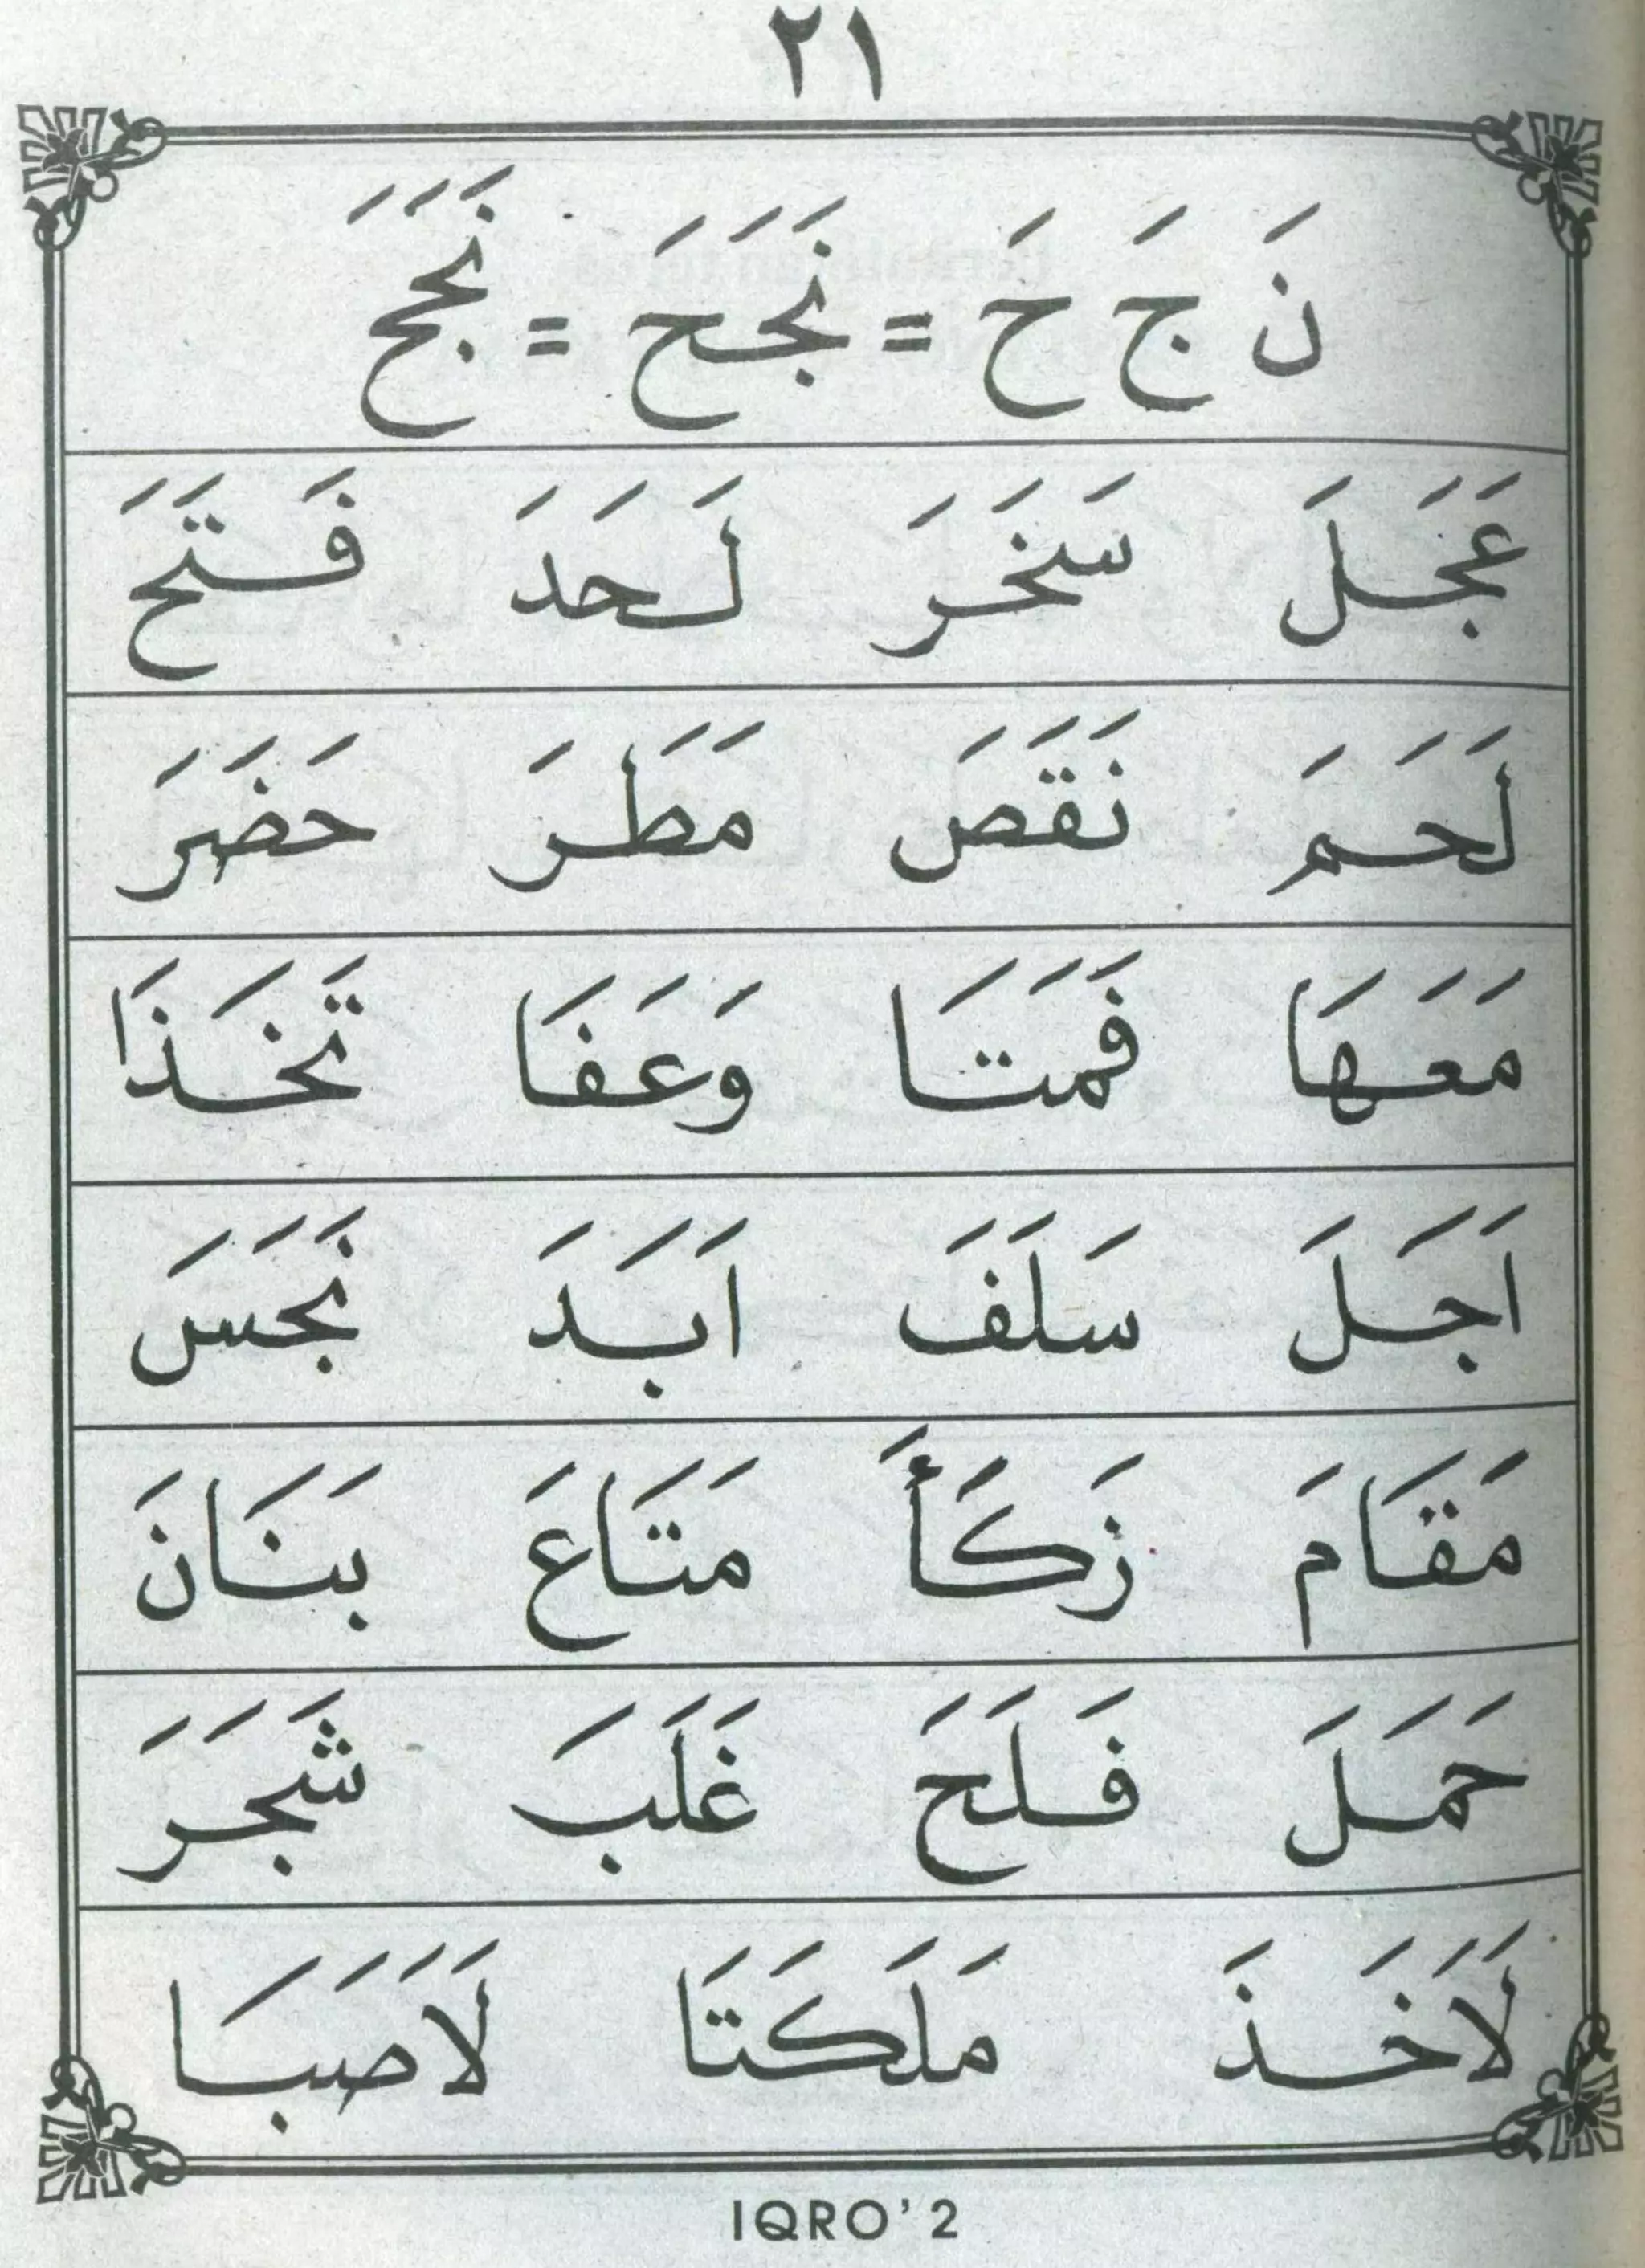 ٢١
نَ جَ حَ = نَجَحَ = نَجَحَ
عَجَلَ سَخَرَ لَحَدَ فَتَحَ
لَحَمَ نَقَصَ مَطَرَ حَضَرَ
مَعَهَا فَمَتَا وَعَفَا تَخَذَا
اَجَلَ سَلَفَ اَبَدَ نَجَسَ
مَقَامَ زَكَأَ مَتَاعَ بَنَانَ
حَمَلَ فَلَحَ غَلَبَ شَجَرَ
لَاَخَذَ مَلَكَتَا لَاَصَبَا
IQRO' 2